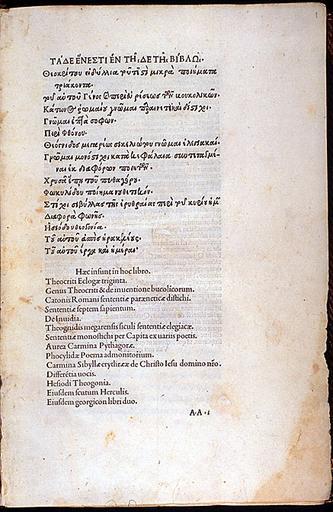 ΤΑΔΕ ΕΝΕΣΤΙ ΕΝ ΤΗ ΔΕ ΤΗ ΒΙΒΛΩ.
Θεοκρίτου εἰδύλλια μικρὰ ποιήματα
τριάκοντα.
τοῦ αὐτοῦ Γένος
Γνῶμαι σοφῶν.
Περὶ φθόνου.
Θεόγνιδος μεγαρέως σικελιώτου γνῶμαι ἐλεγειακαί.
Γνῶμαι μονόστιχοι κατὰ κεφάλαια
ναι ἐκ διαφόρων ποιητῶν.
Χρυσᾶ ἔπη τοῦ πυθαγόρου.
Φωκυλίδου ποίημα νουθετικόν.
Στίχοι σιβύλλας τῆς ἐρυθραίας περὶ τοῦ κυρίου ἡμῶν.
Διαφορὰ φωνῆς.
Ησιόδου θεογονία.
Τοῦ αὐτοῦ ἀσπὶς ἡρακλέους.
Τοῦ αὐτοῦ ἔργα καὶ ἡμέραι.
Hæc insunt in hoc libro.
Theocriti Eclogæ triginta.
Genus Theocriti & de inuentione bucolicorum.
Catonis Romani sententiæ paræneticæ distichi.
Sententiæ septem sapientum.
De Inuidia.
Theognidis megarensis siculi sententiæ elegiacæ.
Sententiæ monostichi per Capita ex uariis poetis.
Aurea Carmina Pythagoræ.
Phocylidæ Poema admonitorium.
Carmina Sibyllæ erythrææ de Christo Iesu domino nr̃o.
Differẽtia uocis.
Hesiodi Theogonia.
Eiusdem scutum Herculis.
Eiusdem georgicon libri duo.
A·A·i